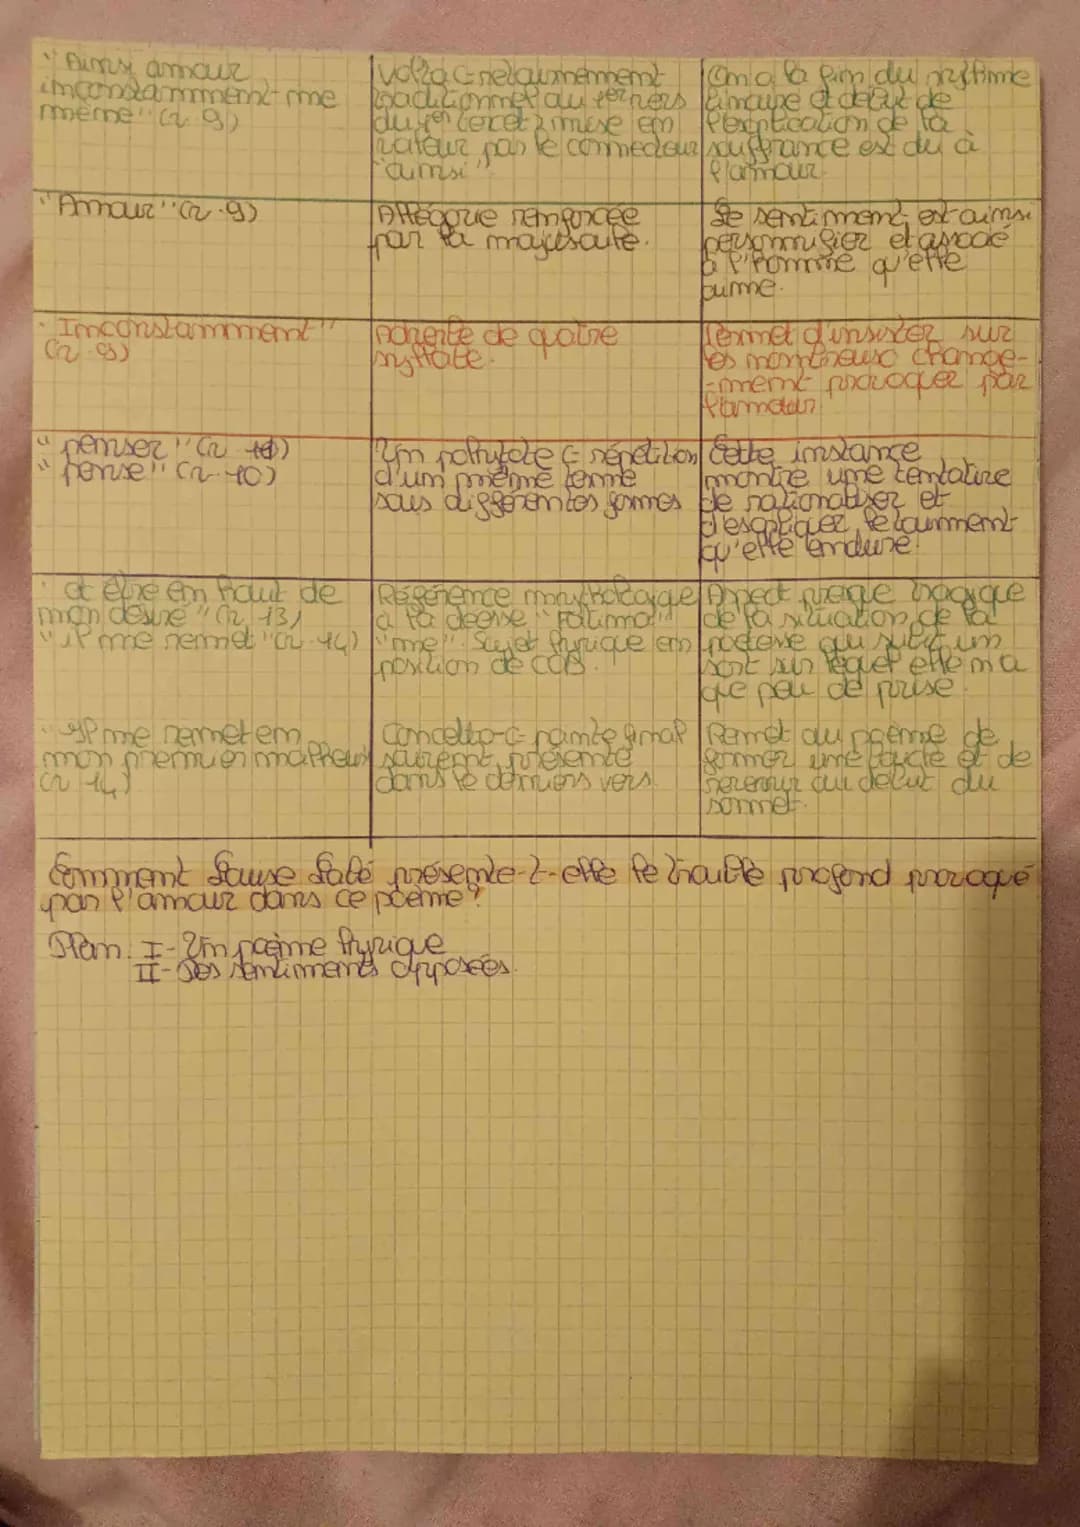 "Ainsi amour
inconstamment me
mène" (v.9)
Volta (= retournement
traditionnel au 1er vers
du 1er tercet) mise en
valeur par le connecteur
"ainsi"
On a la fin du rythme
binaire et début de
l'explication de la
souffrance est du à
l'amour.
"Amour" (v.9)
Allégorie renforcée
par la majuscule.
Le sentiment est ainsi
personnifier et associé
à l'homme qu'elle
aime.
"Inconstamment"
(v.9)
Adverbe de quatre
syllabe.
Permet d'insister sur
les nombreux change-
-ment provoquer par
l'amour
"penser" (v.10)
"pense" (v.10)
Un polyptote (= répétition
d'un même terme
sous différentes formes
Cette instance
montre une tentative
de rationaliser et
d'expliquer le tourment
qu'elle endure.
et être en haut de
mon désiré" (v.13)
"il me remet" (v.14)
Référence mythologique
à la déesse "Fatima"
"me" Sujet lyrique en
position de COD.
Aspect presque tragique
de la situation de la
poétesse qui subit un
sort sur lequel elle n'a
que peu de prise.
"Il me remet en
mon premier malheur
(v.14)
Concetto = pointe final
souvent présente
dans le derniers vers.
Permet au poème de
former une boucle et de
revenir au début du
sonnet.
Comment Louise Labé présente-t-elle le trouble profond provoqué
par l'amour dans ce poème?
Plan: I- Un poème lyrique
II- Des sentiments opposées.